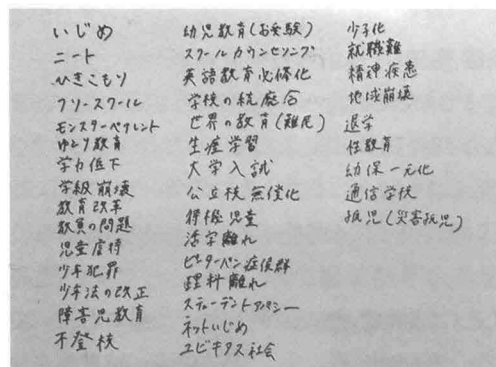 いじめ
ニート
ひきこもり
フリースクール
モンスターペアレント
ゆとり教育
学力低下
学級崩壊
教育改革
教員の問題
児童虐待
少年犯罪
少年法の改正
障害児教育
不登校
幼児教育(お受験)
スクールカウンセリング
英語教育必修化
学校の統廃合
世界の教育(難民)
生涯学習
大学入試
公立校無償化
待機児童
活字離れ
ピーターパン症候群
理科離れ
スチューデントアパシー
ネットいじめ
ユビキタス社会
少子化
就職難
精神疾患
地域崩壊
退学
性教育
幼保一元化
通信学校
孤児(災害孤児)